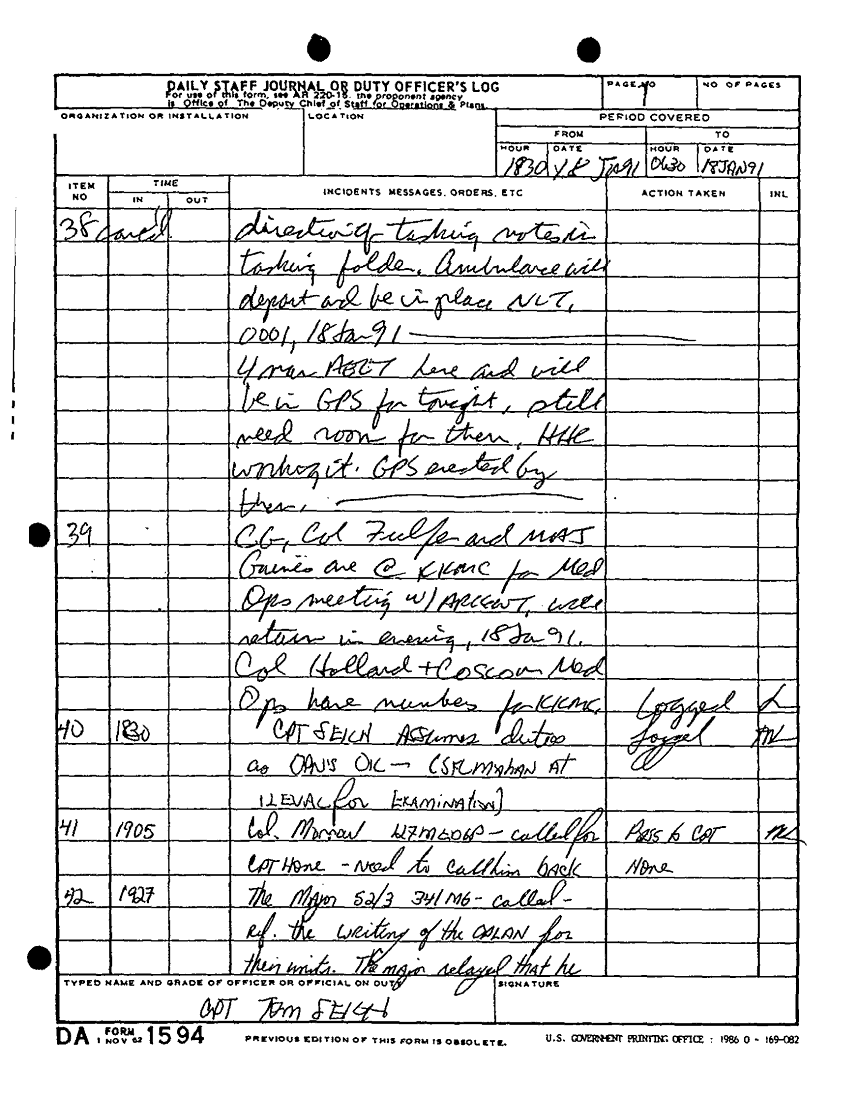 DAILY STAFF JOURNAL OR DUTY OFFICER'S LOG
For use of this form, see AR 220-15, the proponent agency
is Office of The Deputy Chief of Staff for Operations & Plans.
PAGE NO
NO OF PAGES
ORGANIZATION OR INSTALLATION
LOCATION
PERIOD COVERED
FROM
TO
HOUR
DATE
HOUR
DATE
1830
JAN91
0630
18JAN91
ITEM NO
TIME
IN
OUT
INCIDENTS MESSAGES, ORDERS, ETC
ACTION TAKEN
INL
38 cont'd
tasking notes in
tasking folder. Ambulance will
depart and be in place NLT,
0001, 18 Jan 91
4 man here and will
be in GPS for tonight, still
need room for them, HHC
working it. GPS erected by
them.
39
CG, Col and MAJ
Gaines are @ KKMC for Med
Ops meeting w/ARCENT, will
return in evening, 18 Jan 91.
Col Holland + Coscom Med
Ops have number for KKMC.
Logged
40
1830
CPT SEICH Assumes duties
as OIC - (SFC MAHAN AT
for EXAMINATION)
Logged
41
1905
Col. - called for
CPT Hone - Need to call him back
Pass to CPT
Hone
42
1927
The Major S2/3 341 MG - called -
ref. the writing of the OPLAN for
their units. The major relayed that he
TYPED NAME AND GRADE OF OFFICER OR OFFICIAL ON DUTY
SIGNATURE
CPT Tom SEICH
DA FORM 1594
1 NOV 62
PREVIOUS EDITION OF THIS FORM IS OBSOLETE.
U.S. GOVERNMENT PRINTING OFFICE : 1986 O - 169-082